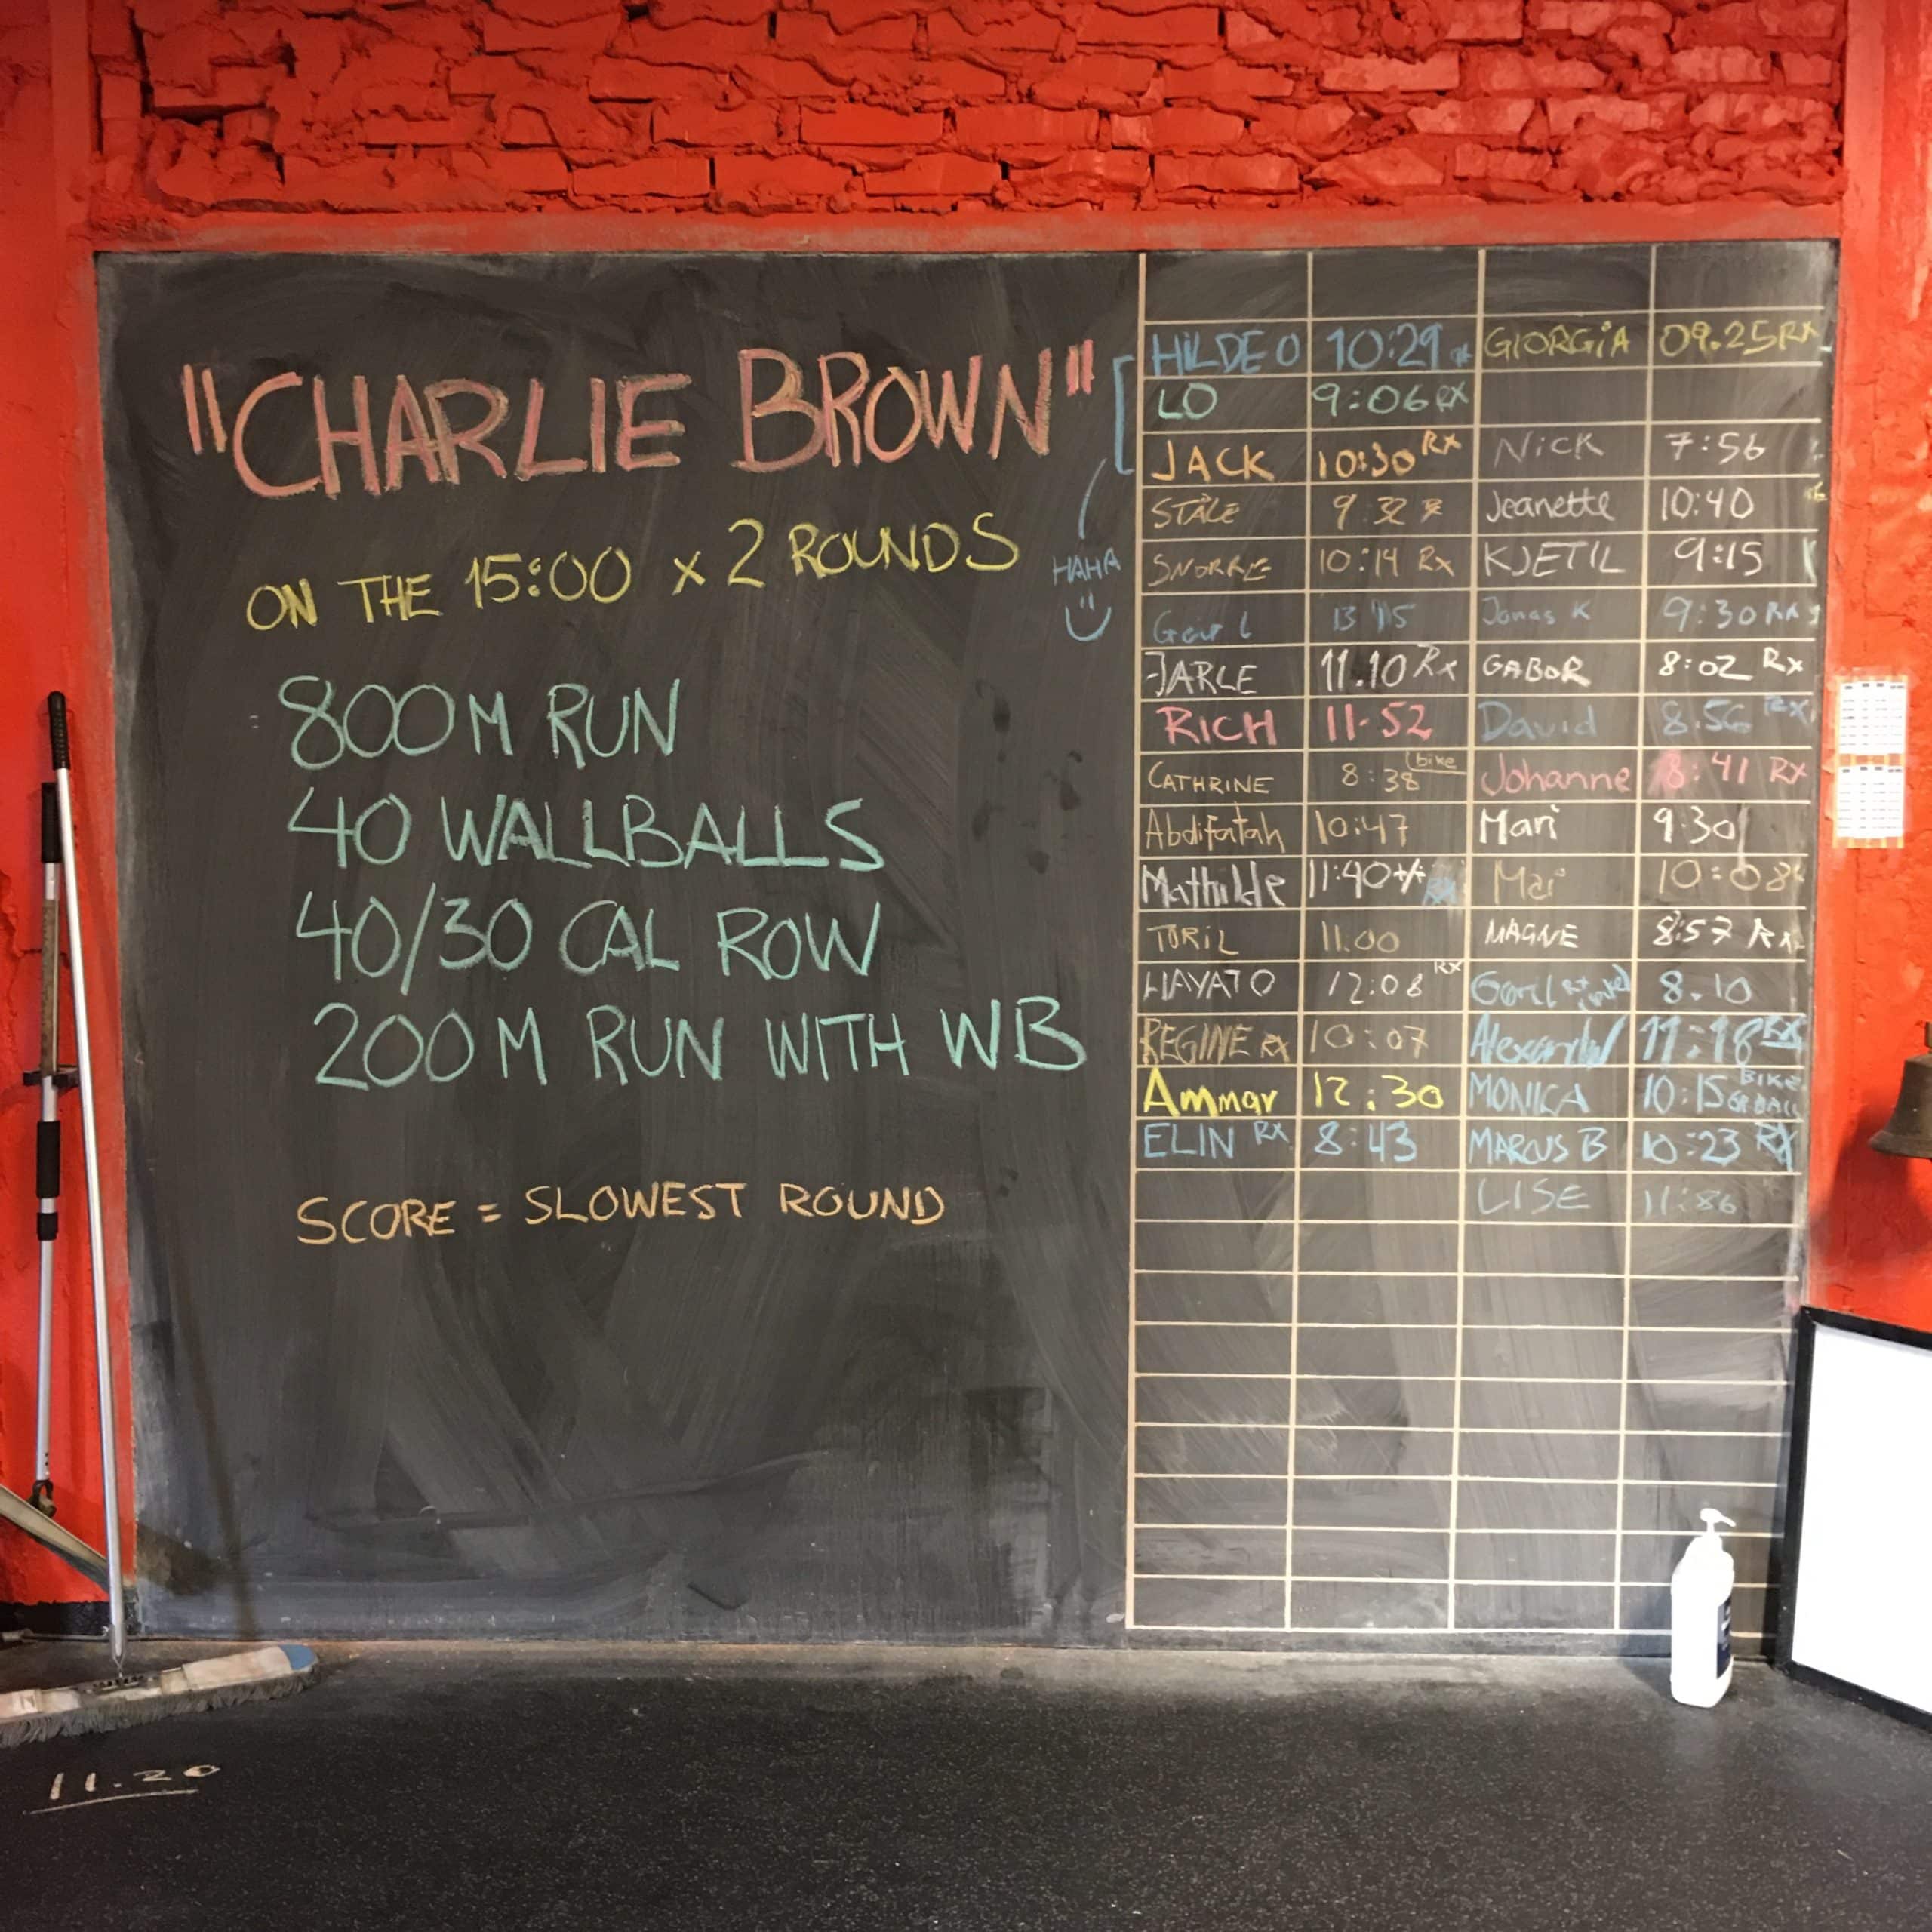 "CHARLIE BROWN"
ON THE 15:00 x 2 ROUNDS
800M RUN
40 WALLBALLS
40/30 CAL ROW
200M RUN WITH WB
SCORE = SLOWEST ROUND
HAHA
HILDE O 10:29 GIORGIA 09.25 RX
LO 9:06 RX
JACK 10:30 RX NICK 7:56
STÅLE 9:32 Jeanette 10:40
SNORRE 10:14 Rx KJETIL 9:15
Geir L 13 15 Jonas K 9:30
JARLE 11.10 Rx GABOR 8:02 Rx
RICH 11.52 David 8.56 RX
CATHRINE 8:38 bike Johanne 8:41 RX
Abdifatah 10:47 Mari 9:30
Mathilde 11:40 +/- Mai 10:08
TORIL 11.00 MAGNE 8:57 Rx
HAYATO 12:08 RX 8.10
REGINE RX 10:07 11:18 RX
Ammar 12:30 MONICA 10:15 BIKE
ELIN RX 8:43 MARCUS B 10:23 RX
LISE 11:86
11.20